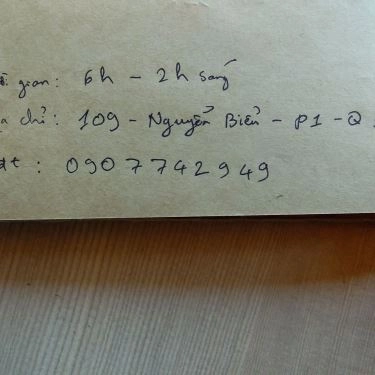 gian: 6h - 2h sáng
chỉ: 109 - Nguyễn Biểu - P1 - Q
đt: 0907742949